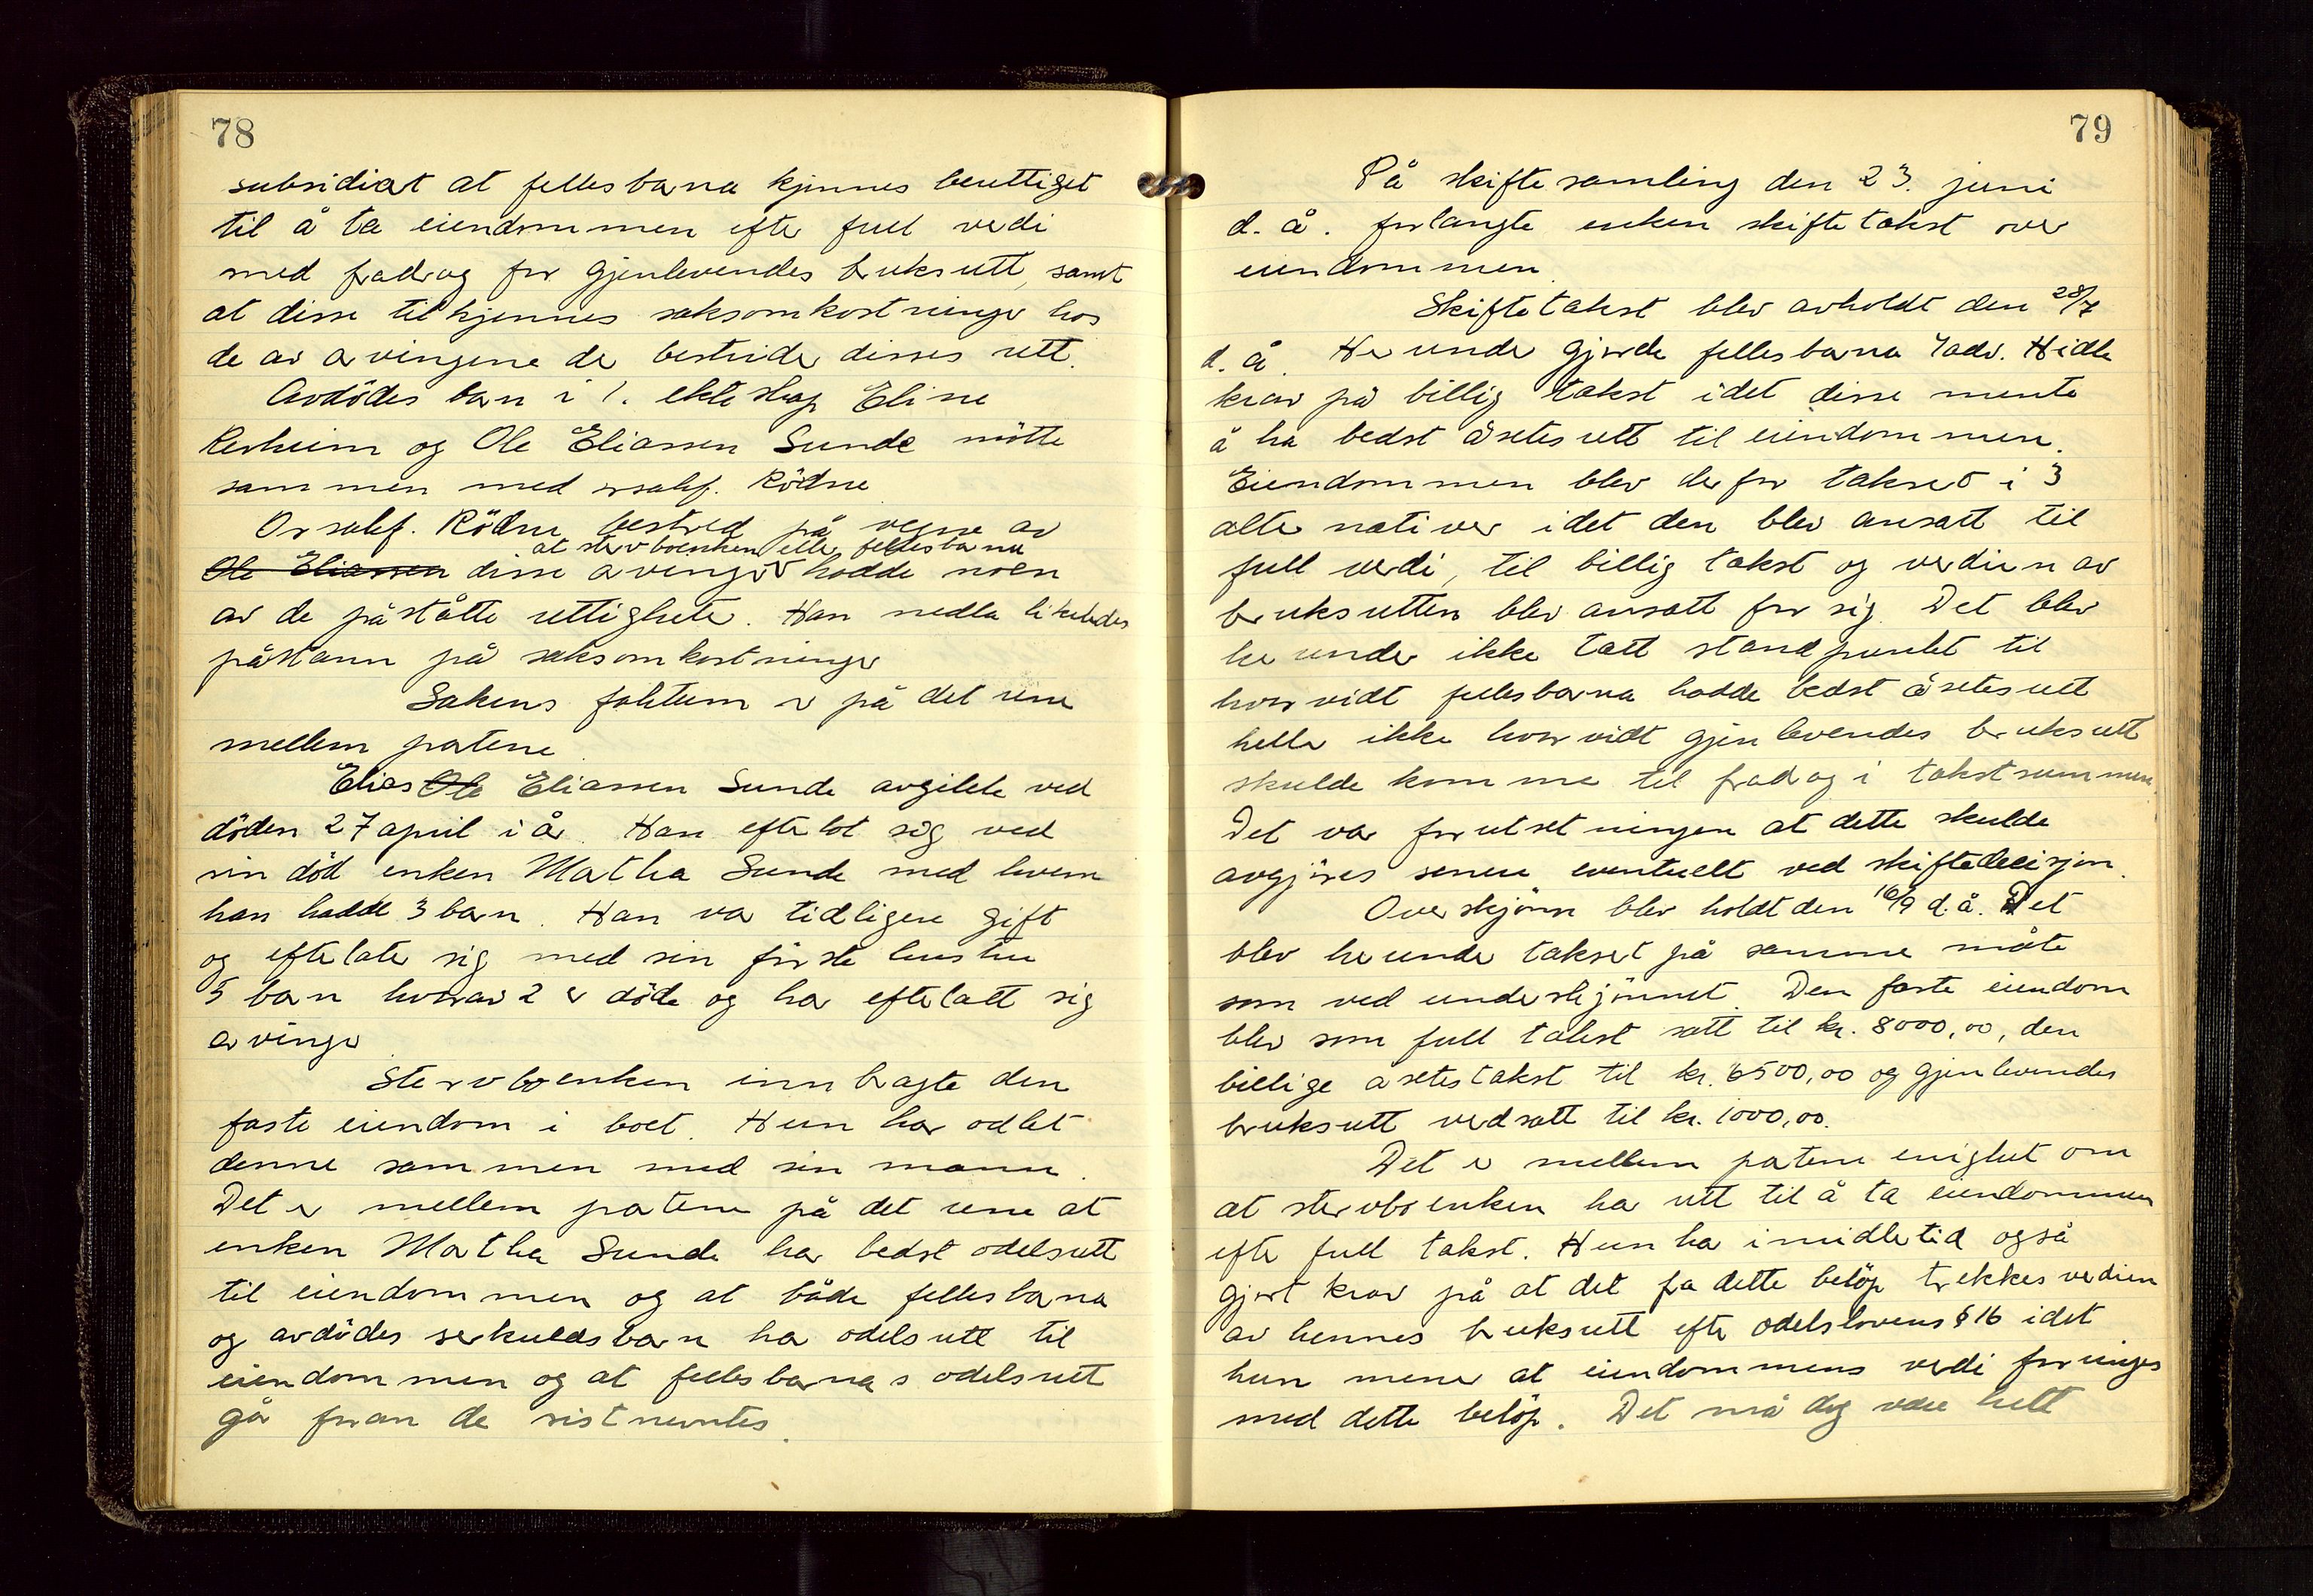 78
subsidiært at fellesbarna kjennes berettiget
til å ta eiendommen efter full verdi
med fradrag for gjenlevendes bruksrett, samt
at disse tilkjennes saksomkostninger hos
de av arvingene der bestrider disses rett.
Avdödes barn i 1. ekteskap Eline
Rerheim og Ole Eliassen Sunde mötte
sammen med orsakf. Rödne
Orsakf. Rödne bestred på vegne av
at stervboenken eller fellesbarna
Ole Eliassen disse arvinger hadde noen
av de påståtte rettigheter. Han nedla likeledes
påstann på saksomkostninger
Sakens faktum er på det rene
mellem partene
Elias Ole Eliassen Sunde avgikk ved
döden 27 april i år. Han efterlot sig ved
sin död enken Martha Sunde med hvem
han hadde 3 barn. Han var tidligere gift
og efterlater sig med sin förste hustru
5 barn hvorav 2 er döde og har efterlatt sig
arvinger
Stervboenken innbragte den
faste eiendom i boet. Hun har odlet
denne sammen med sin mann.
Det er mellem partene på det rene at
enken Martha Sunde har bedst odelsrett
til eiendommen og at både fellesbarna
og avdödes særkuldsbarn har odelsrett til
eiendommen og at fellesbarnas odelsrett
går foran de sistnevntes.
79
På skiftesamling den 23. juni
d. å. forlangte enken skiftetakst over
eiendommen
Skiftetakst blev avholdt den 28/7
d. å. Herunder gjorde fellesbarna v/adv. Hidle
krav på billig takst idet disse mente
å ha bedst åsetesrett til eiendommen.
Eiendommen blev derfor taksert i 3
alternativer idet den blev ansatt til
full verdi, til billig takst og verdien av
bruksretten blev ansatt for sig. Det blev
herunder ikke tatt standpunkt til
hvorvidt fellesbarna hadde bedst åsetesrett
heller ikke hvorvidt gjenlevendes bruksrett
skulde komme til fradrag i takstsummen.
Det var forutsetningen at dette skulde
avgjöres senere eventuelt ved skiftedecisjon.
Overskjönn blev holdt den 16/9 d. å. Det
blev herunder taksert på samme måte
som ved underskjönnet. Den faste eiendom
blev som full takst satt til kr. 8000,00, den
billige åsetestakst til kr. 6500,00 og gjenlevendes
bruksrett verdsatt til kr. 1000,00.
Det er mellem partene enighet om
at stervboenken har rett til å ta eiendommen
efter full takst. Hun har imidlertid også
gjort krav på at det fra dette belöp trekkes verdien
av hennes bruksrett efter odelslovens § 16 idet
hun mener at eiendommens verdi forringes
med dette belöp. Det må dog være helt